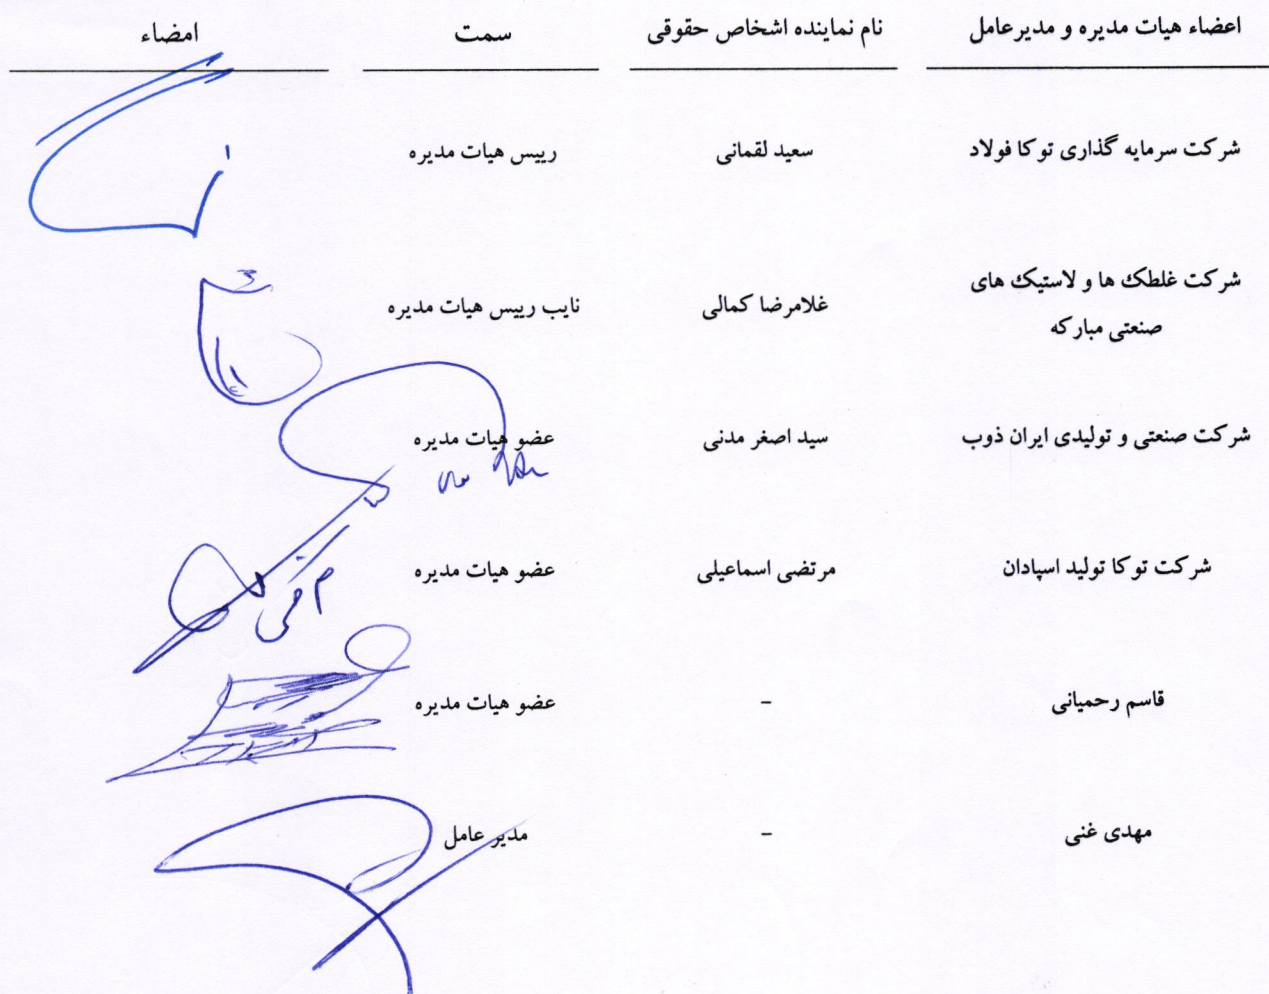 اعضاء هیات مدیره و مدیرعامل نام نماینده اشخاص حقوقی سمت امضاء
شرکت سرمایه گذاری توکا فولاد سعید لقمانی رییس هیات مدیره
شرکت غلطک ها و لاستیک های
صنعتی مبارکه غلامرضا کمالی نایب رییس هیات مدیره
شرکت صنعتی و تولیدی ایران ذوب سید اصغر مدنی عضو هیات مدیره
شرکت توکا تولید اسپادان مرتضی اسماعیلی عضو هیات مدیره
قاسم رحمیانی - عضو هیات مدیره
مهدی غنی - مدیر عامل